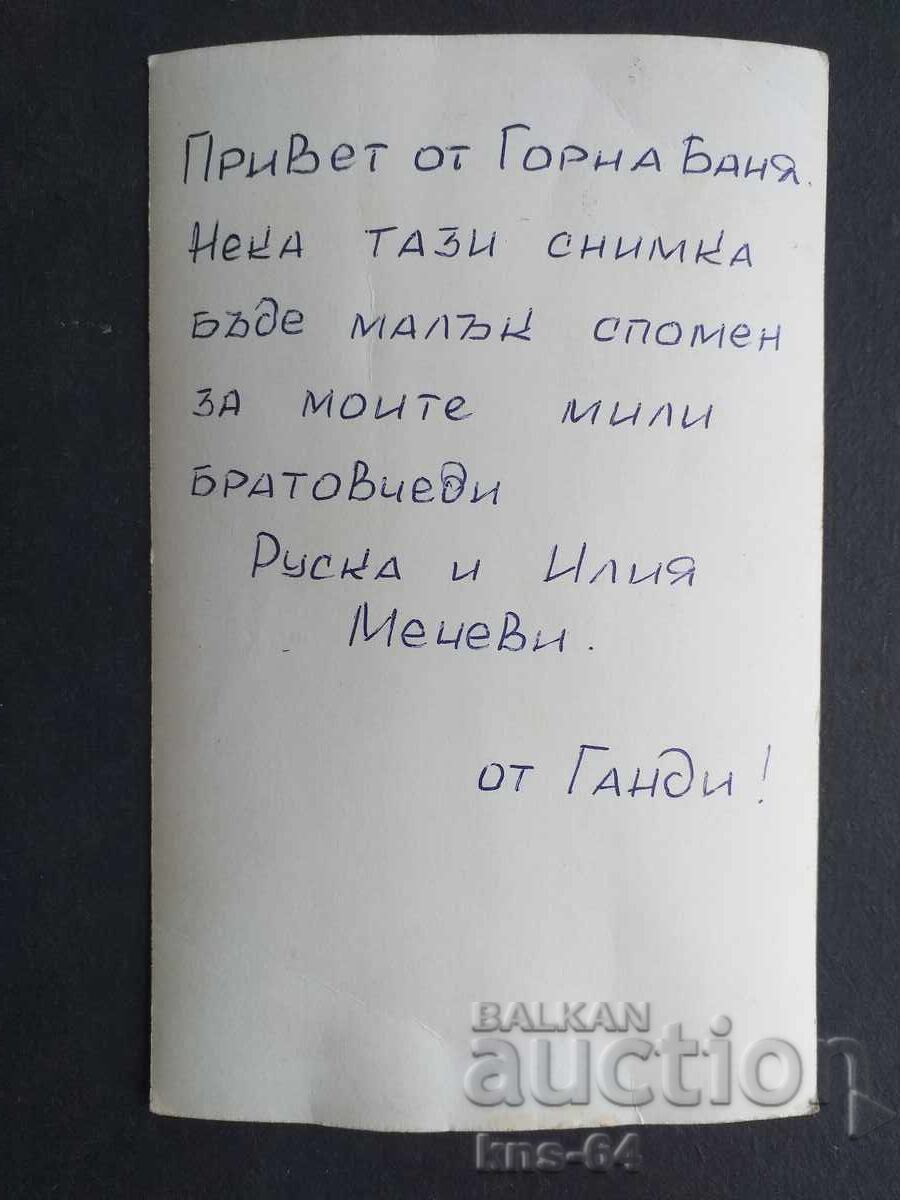 Привет от Горна Баня.
Нека тази снимка
бъде малък спомен
за моите мили
братовчеди
Руска и Илия
Мечеви.
от Ганди!
BALKAN
auction
kns-64